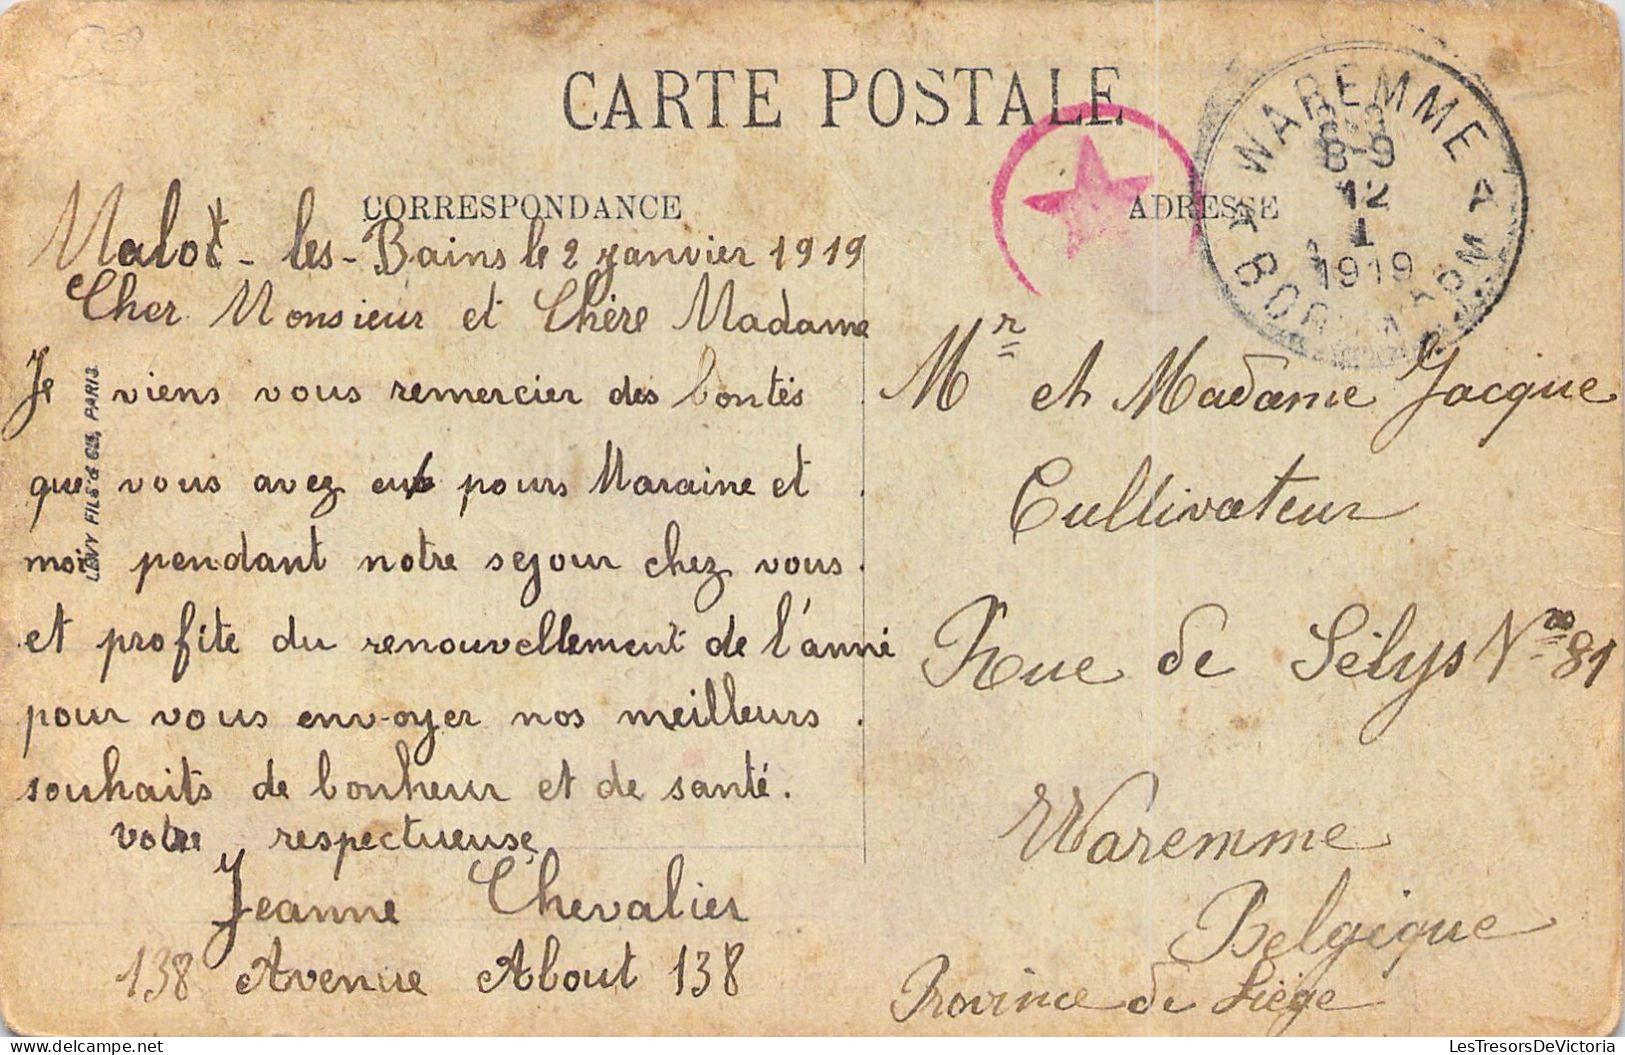 CARTE POSTALE
CORRESPONDANCE
Malo - les - Bains le 2 janvier 1919
Cher Monsieur et Chère Madame
Je viens vous remercier des bontés
que vous avez eub pours Maraine et
moi pendant notre sejour chez vous.
et profite du renouvellement de l'anné
pour vous envoyer nos meilleurs
souhaits de bonheur et de santé.
votre respectueuse
Jeanne Chevalier
138 Avenue About 138
LEVY FILS & CIE, PARIS
ADRESSE
WAREMME
8-9
12
1
1919
BORGWORM
Mr et Madame Jacque
Cultivateur
Rue de Sélys No 81
Waremme
Belgique
Province de Liége
LesTresorsDeVictoria
delcampe.net